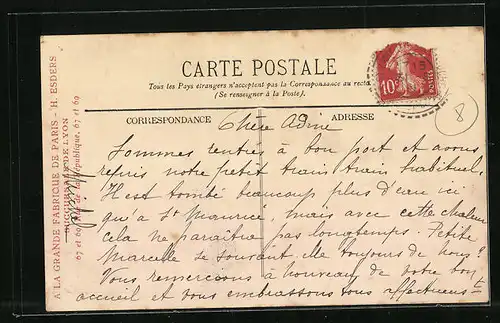 A LA GRANDE FABRIQUE DE PARIS - H. ESDERS
SUCCURSALE DE LYON
67 et 69 Rue de la République, 67 et 69
CARTE POSTALE
Tous les Pays étrangers n'acceptent pas la Correspondance au recto
(Se renseigner à la Poste).
10c
POSTES
8
CORRESPONDANCE
ADRESSE
Chère Adine
Sommes rentrés à bon port et avons
repris notre petit train train habituel.
Il est tombé beaucoup plus d'eau ici
qu'à St Maurice, mais avec cette chaleur
cela ne paraîtra pas longtemps. Petite
Marcelle se souvient elle toujours de nous?
Vous remercions à nouveau de votre bon
accueil et vous embrassons tous affectueusᵗ